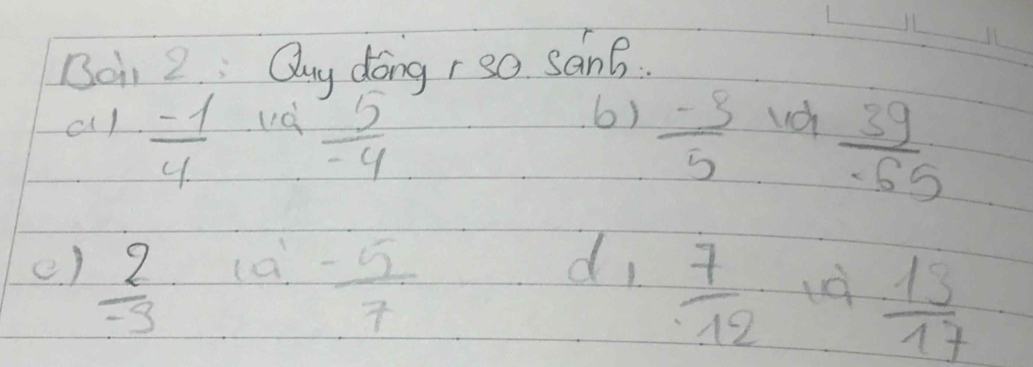 Bài 2 : Quy đồng, so sánh.
a) -1/4 và 5/-4 b) -3/5 và 39/-65
c) 2/-3 và -5/7 d, 7/-12 và 13/17